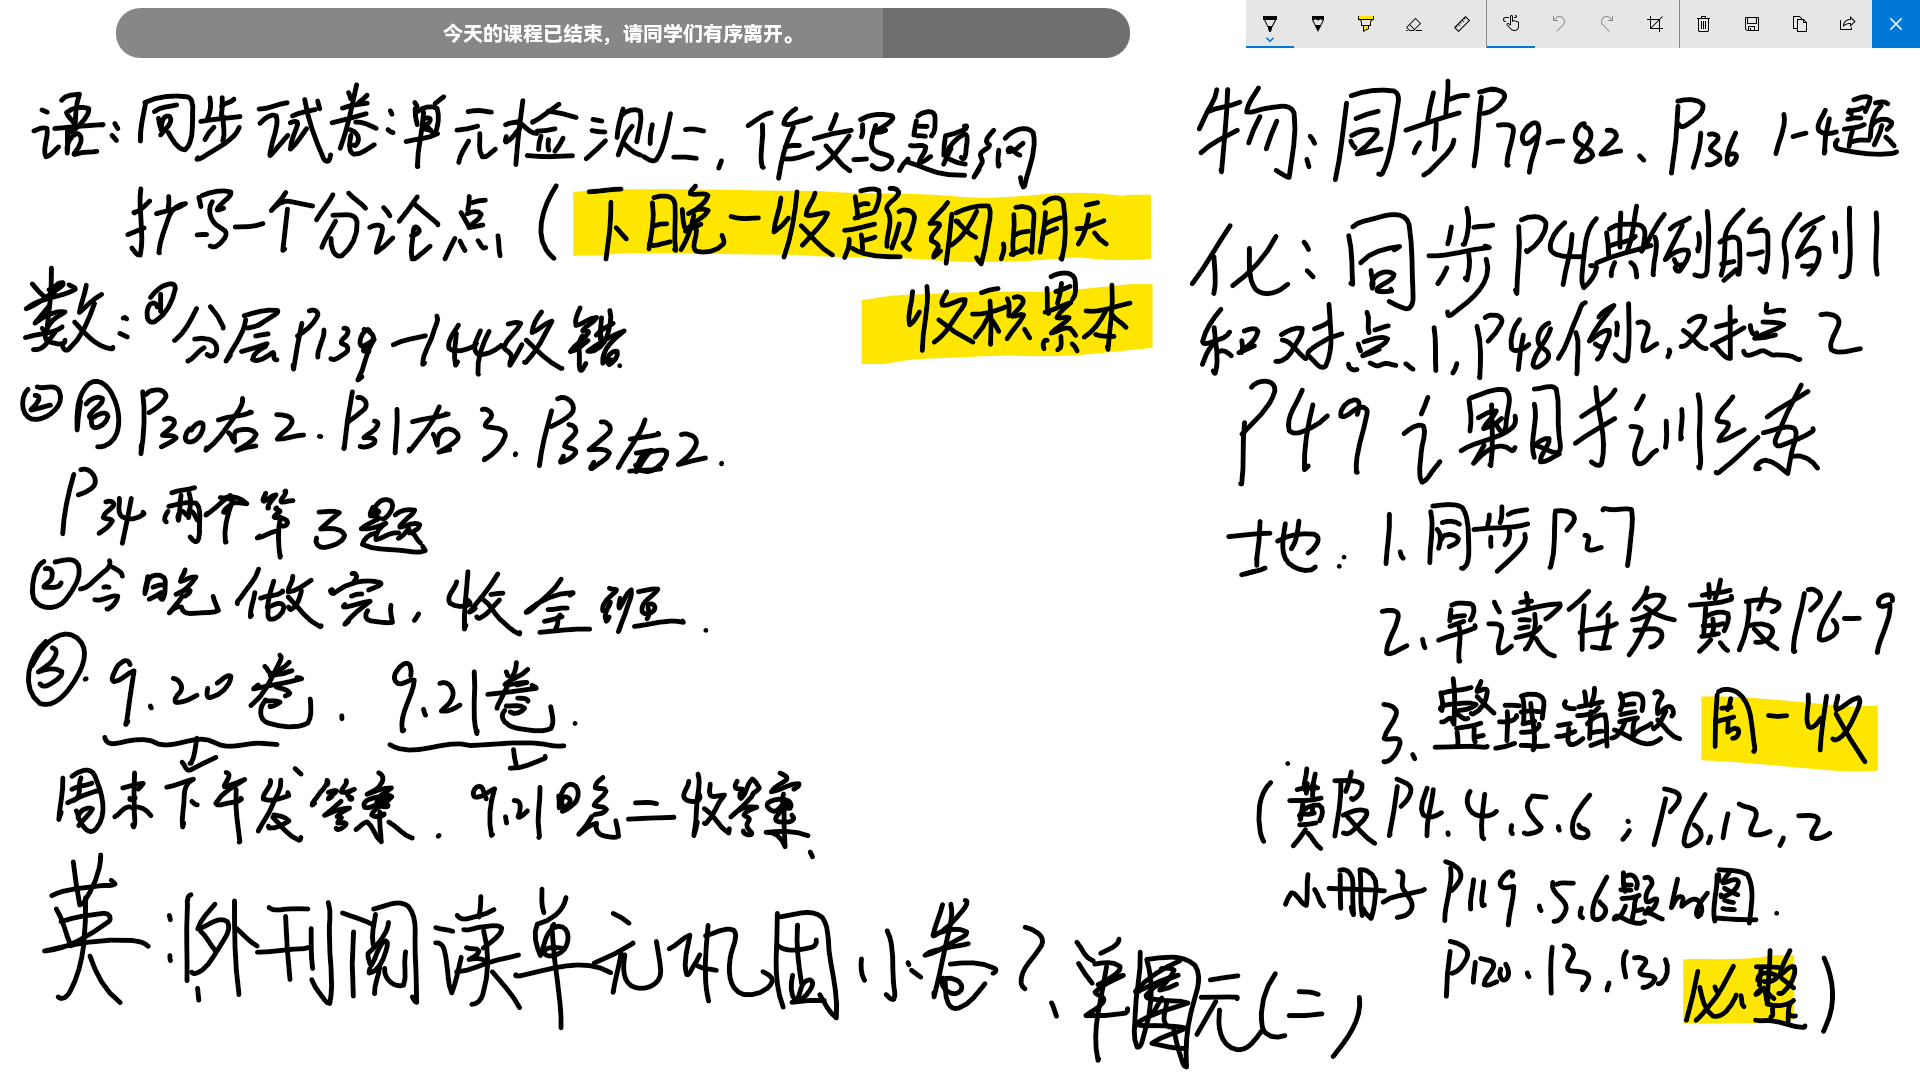 今天的课程已结束，请同学们有序离开。
语：同步试卷：单元检测二，作文写题纲
抄写一个分论点（下晚一收题纲，明天
收积累本
数：①分层P139-144改错.
②同P30右2.P31右3.P33右2.
P34两个第3题
②今晚做完，收全班.
③.9.20卷.9.21卷.
周末下午发答案.9.21晚二收答案、
英：外刊阅读单元巩固小卷2、单元(二)
物：同步P79-82、P136 1-4题
化：同步P46典例的例1
和对点、1,P48例2,对点2
P49课时训练
地：1、同步P27
2、早读任务黄皮P6-9
3、整理错题 周一收
(黄皮P4.4.5.6；P6,12,2
小册子P119.5,6题图.
P120.13,(3)必整)